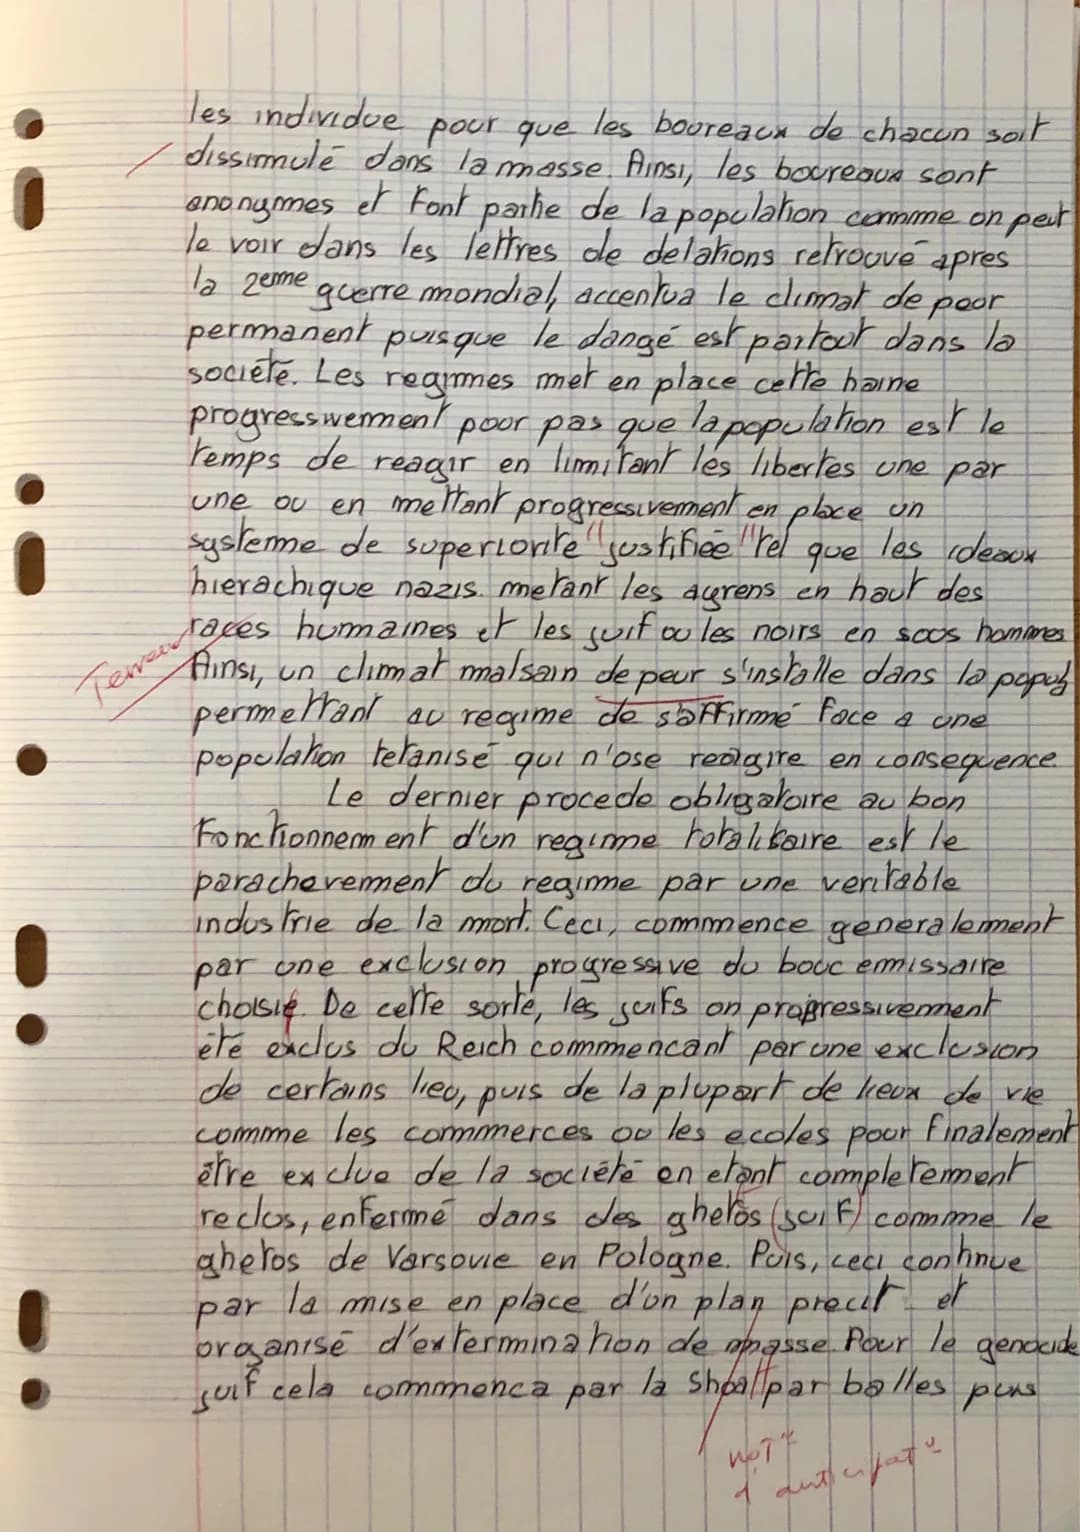 les individue pour que les boureaux de chacun soit
dissimulé dans la masse. Ainsi, les boureaux sont
anonymes et font partie de la population comme on peut
le voir dans les lettres de delations retrouvé apres
la 2eme guerre mondial, accentua le climat de peor
permanent puisque le dangé est partout dans la
société. Les regimes met en place cette haine
progressivement pour pas que la population est le
temps de reagir en limitant les libertes une par
une ou en mettant progressivement en place un
systeme de superiorite "justifiée" tel que les ideaux
hierachique nazis. metant les ayrens en haut des
races humaines et les juif ou les noirs en sous hommes
Terreur
Ainsi, un climat malsain de peur s'installe dans la popul
permettant au regime de s'affirmé face a une
population tetanisé qui n'ose reagire en consequence.
Le dernier procede obligatoire au bon
Fonctionnement d'un regime totalitaire est le
parachevement du regime par une veritable
industrie de la mort. Ceci, commence generalement
par une exclusion progressive du bouc emissaire
choisie. De cette sorte, les juifs on progressivement
été exclus du Reich commencant par une exclusion
de certains lieu, puis de la plupart de lieux de vie
comme les commerces ou les ecoles pour finalement
être exclue de la société en etant completement
reclus, enfermé dans des ghetos (juif) comme le
ghetos de Varsovie en Pologne. Puis, ceci continue
par la mise en place d'un plan precit et
organisé d'extermination de masse. Pour le genocide
juif cela commenca par la Shoah par balles puis
not°
d'anticipat°